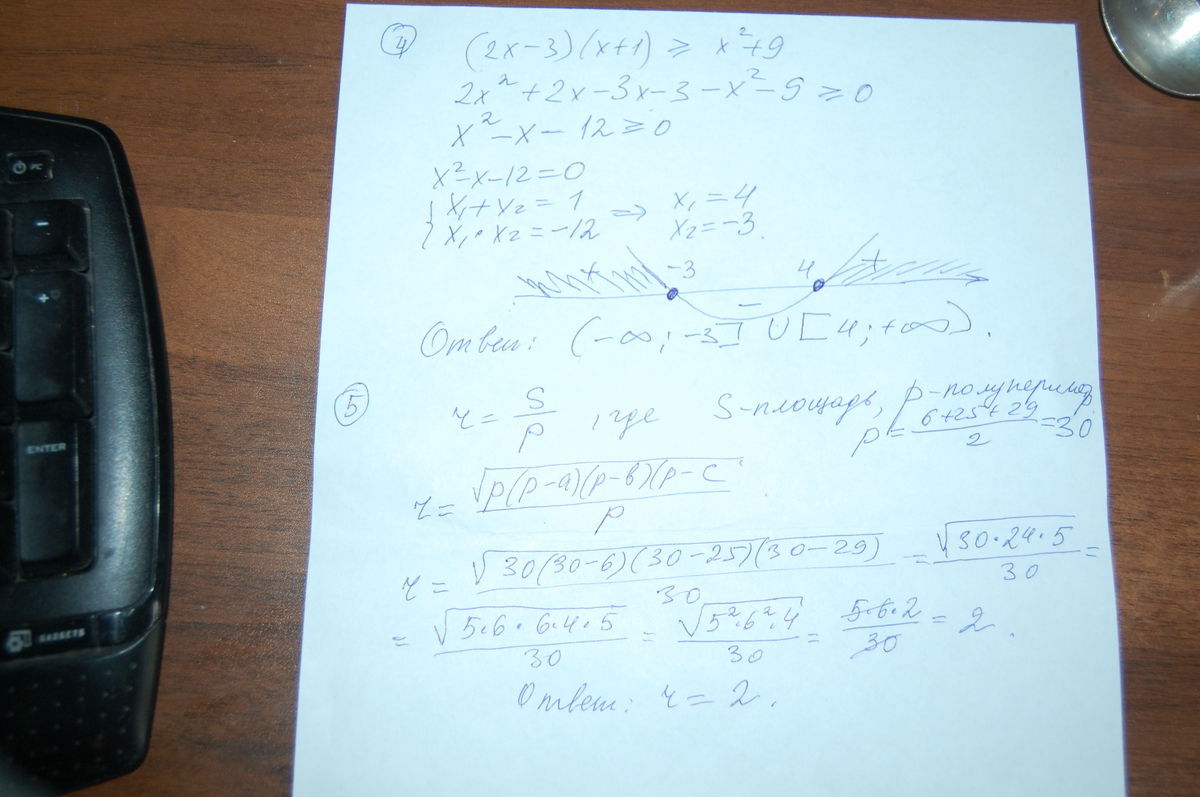 ④ (2x-3)(x+1) ≥ x²+9
2x²+2x-3x-3-x²-9 ≥ 0
x²-x-12 ≥ 0
x²-x-12=0
{ x₁+x₂=1 ⇒ x₁=4
{ x₁·x₂=-12 x₂=-3.
+ -3 - 4 +
Ответ: (-∞; -3] ∪ [4; +∞).
⑤ r = S/p, где S-площадь, p-полупериметр.
p = (6+25+29)/2 = 30
r = √(p(p-a)(p-b)(p-c)/p
r = √(30(30-6)(30-25)(30-29))/30 = √(30·24·5)/30 =
= √(5·6·6·4·5)/30 = √(5²·6²·4)/30 = 5·6·2/30 = 2.
Ответ: r = 2.
PC
-
+
ENTER
GADGETS